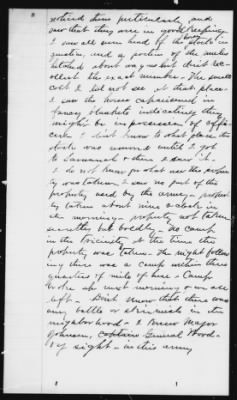 noticed them particularly and
saw that they were in good keeping
I saw all seven head of the stock in
question, and a portion of the mules
hitched about wagons but did not re-
collect the exact number. The small
colt I did not see at that place.
I saw the horse caparisoned in
fancy indicating they
might be in possession of offi-
cers. I didn't know to what place the
stock was removed until I got
to Savannah & there I saw it.
I do not know for what use the proper-
ty was taken. I saw no part of the
property used by the army. proper-
ty taken about nine o'clock in
the morning - property not taken
secretly but boldly. No camp
in the vicinity at the time the
property was taken. The night follow-
ing there was a camp within three
quarters of mile of here. Camp
broke up next morning & was all
left. Didn't know that there was
any battle or skirmish in the
neighborhood. I knew Major
General Wood
by sight - in this army